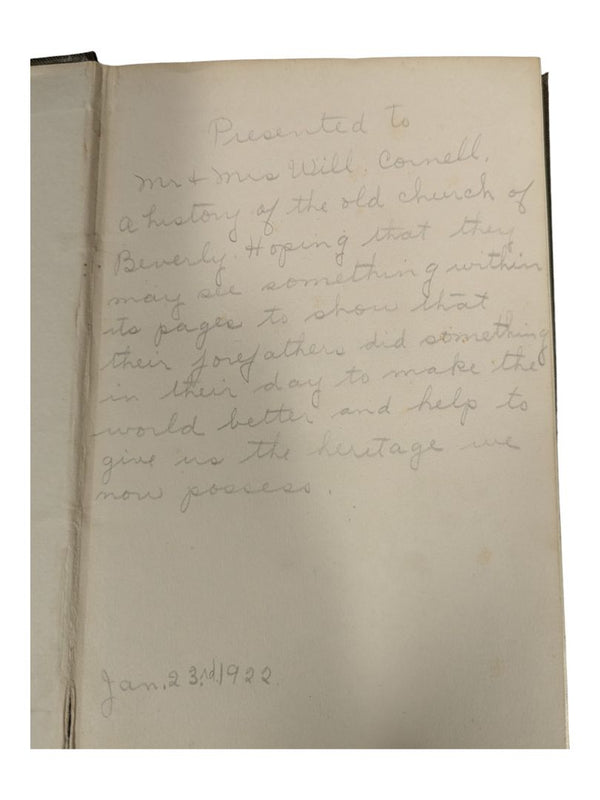 Presented to
Mr + Mrs Will. Cornell.
A history of the old church of
Beverly. Hoping that they
may see something within
its pages to show that
their forefathers did something
in their day to make the
world better and help to
give us the heritage we
now possess.
Jan. 23rd 1922